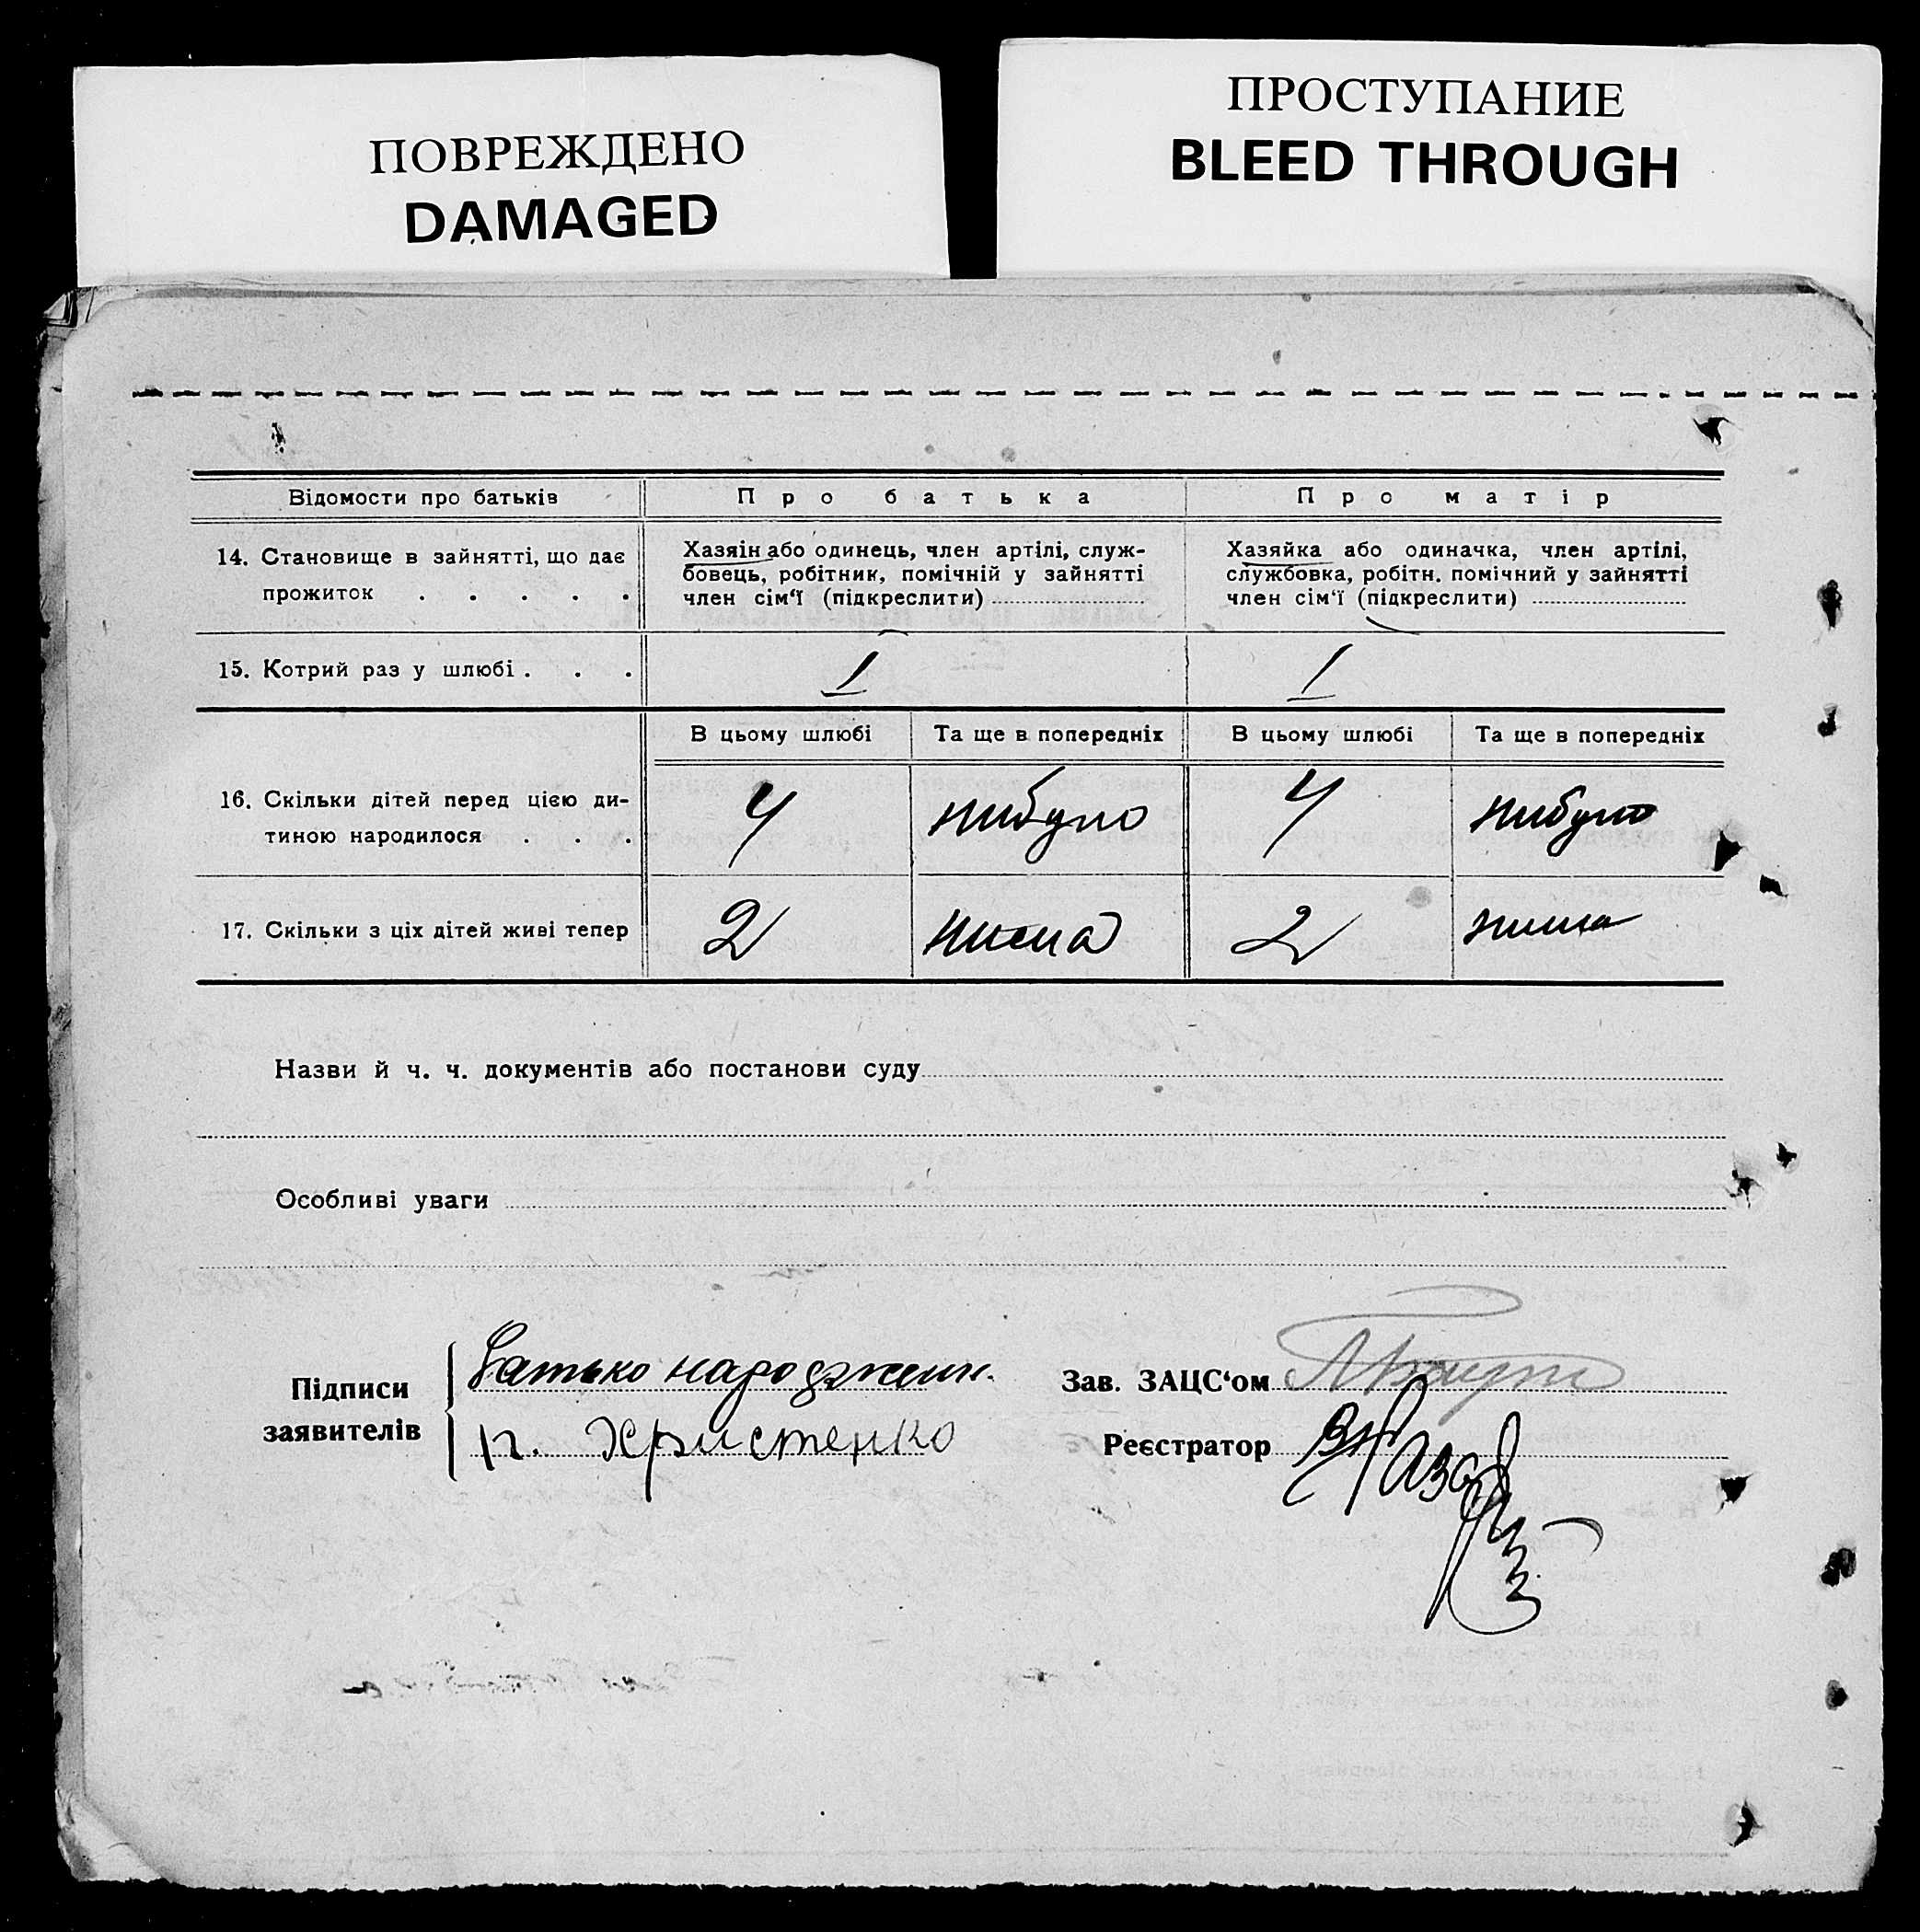 ПОВРЕЖДЕНО
DAMAGED
ПРОСТУПАНИЕ
BLEED THROUGH
Відомости про батьків
Про батька
Про матір
14. Становище в зайнятті, що дає
прожиток . . . . .
Хазяін або одинець, член артілі, служ-
бовець, робітник, помічній у зайнятті
член сім'ї (підкреслити)
Хазяйка або одиначка, член артілі,
службовка, робітн. помічний у зайнятті
член сім'ї (підкреслити)
15. Котрий раз у шлюбі . . .
1
1
В цьому шлюбі
Та ще в попередніх
В цьому шлюбі
Та ще в попередніх
16. Скільки дітей перед цією ди-
тиною народилося . . .
4
нибуло
4
нибуло
17. Скільки з ціх дітей живі тепер
2
нима
2
нима
Назви й ч. ч. документів або постанови суду
Особливі уваги
Підписи
заявителів
Батько народженн.
п. Христенко
Зав. ЗАЦС'ом
Реєстратор